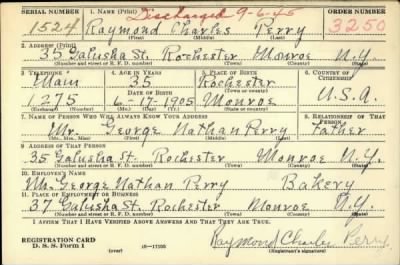 SERIAL NUMBER 1. NAME (Print) ORDER NUMBER
Discharged 9-6-45
1524 Raymond Charles Perry 3250
(First) (Middle) (Last)
2. ADDRESS (Print)
35 Galusha St. Rochester Monroe N.Y.
(Number and street or R. F. D. number) (Town) (County) (State)
3. TELEPHONE 4. AGE IN YEARS 5. PLACE OF BIRTH 6. COUNTRY OF CITIZENSHIP
Main 35 Rochester
DATE OF BIRTH (Town or county)
1275 6-17-1905 Monroe U.S.A.
(Exchange) (Number) (Mo.) (Day) (Yr.) (State or country)
7. NAME OF PERSON WHO WILL ALWAYS KNOW YOUR ADDRESS 8. RELATIONSHIP OF THAT PERSON
Mr. George Nathan Perry Father
(Mr., Mrs., Miss) (First) (Middle) (Last)
9. ADDRESS OF THAT PERSON
35 Galusha St. Rochester Monroe N.Y.
(Number and street or R. F. D. number) (Town) (County) (State)
10. EMPLOYER'S NAME
Mr. George Nathan Perry Bakery
11. PLACE OF EMPLOYMENT OR BUSINESS
37 Galusha St. Rochester Monroe N.Y.
(Number and street or R. F. D. number) (Town) (County) (State)
I AFFIRM THAT I HAVE VERIFIED ABOVE ANSWERS AND THAT THEY ARE TRUE.
REGISTRATION CARD
D. S. S. Form 1 (over) 16-17105 Raymond Charles Perry
(Registrant's signature)